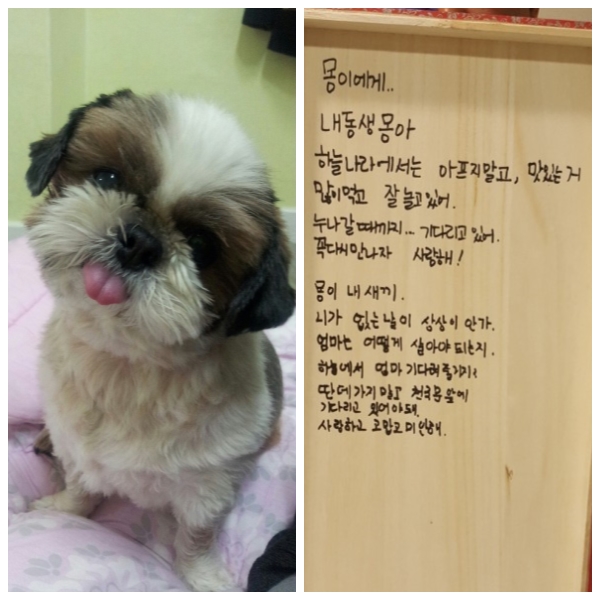 몽이에게..
내동생 몽아
하늘나라에서는 아프지말고, 맛있는거
많이먹고 잘 놀고있어.
누나갈때까지... 기다리고있어.
꼭다시만나자 사랑해!
몽이 내새끼.
니가 없는날이 상상이 안가.
엄마는 어떻게 살아야되는지.
하늘에서 엄마기다려줄거지?
딴데가지말고 천국문앞에
기다리고 있어야돼.
사랑하고 고맙고미안해.